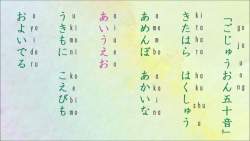 「ごじゅうおん五十音」
ki ta ha ra ha ku shu u
きたはら はくしゅう
a me m bo a ka i na
あめんぼ あかいな
a i u e o
あいうえお
u ki mo ni ko e bi mo
うきもに こえびも
o yo i de ru
およいでる